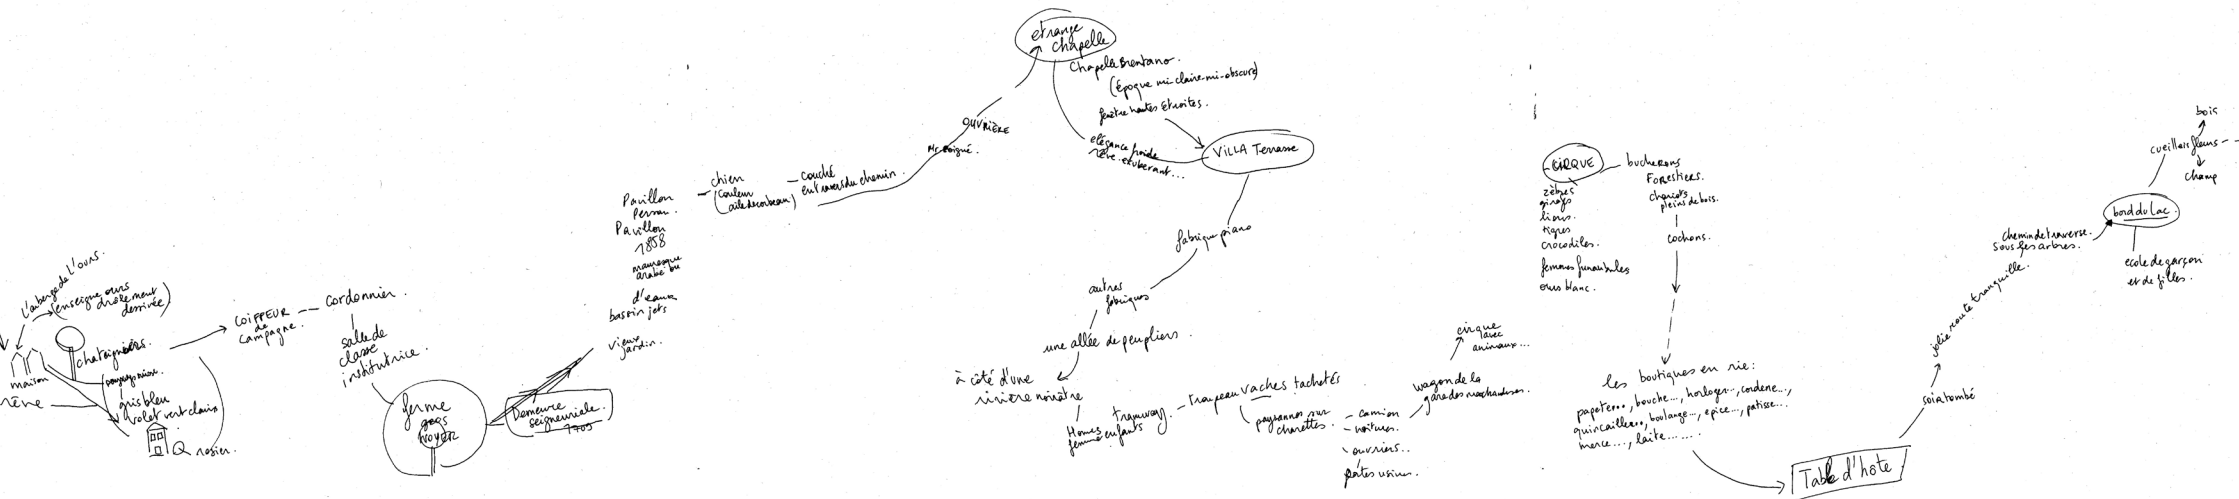 L'auberge de L'ours.
(enseigne ours
drôlement
dessinée)
chataigniers.
maison
rêve
gris bleu
volet vert clair
rosier.
COIFFEUR
de
campagne.
cordonnier.
salle de
classe
institutrice.
ferme
gros
noyer
Demeure
seigneuriale.
1709
Pavillon
Persan.
Pavillon
1858
mauresque
arabe ou
d'eaux
bassin jets
vieux
jardin.
chien
(couleur
aile de corbeau)
couché
en travers du chemin.
Mr Poigné.
OUVRIÈRE
étrange
chapelle
Chapelle Brentano.
(Époque mi-claire-mi-obscure)
fenêtre hautes étroites.
élégance froide
rêve exubérant...
VILLA Terrasse
fabrique piano
autres
fabriques
une allée de peupliers.
à côté d'une
rivière noirâtre
Homes
femme enfants
tramway.
troupeau vaches tachetés
paysannes sur
charettes.
camion
voitures.
ouvriers..
portes usines.
wagon de la
gare des marchandises.
cirque
avec
animaux...
CIRQUE
zèbres
girafes
lions.
tigres
crocodiles.
femmes funambules
ours blanc.
bucherons
Forestiers.
chariots
pleins de bois.
cochons.
les boutiques en rie:
papeter..., bouche..., horloger..., cordone...,
quincaille..., boulange..., epice..., patisse...
merce...., laite.......
Table d'hôte
soir tombé
jolie route tranquille,
chemin de traverse.
sous les arbres.
bord du Lac.
ecole de garçon
et de filles.
cueillers fleurs
bois
champ